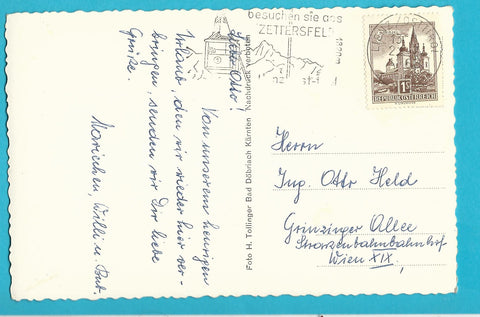 besuchen sie das
ZETTERSFELD
1820m
LIENZ
REPUBLIK ÖSTERREICH
1S
Lieber Otto!
Von unserem heurigen
Urlaub, den wir wieder hier ver-
bringen, senden wir Dir liebe
Grüße.
Mariechen, Willi u.
Foto H. Tollinger Bad Döbriach Kärnten Nachdruck verboten
Herrn
Ing. Otto Held
Grinzinger Allee
Strassenbahnbahnhof
Wien XIX.